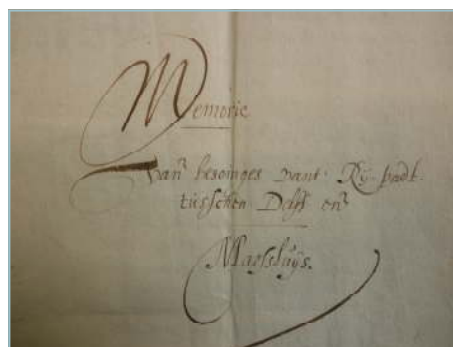 Memorie
van besoinges vant Rij-padt
tusschen Delft en
Maessluijs.